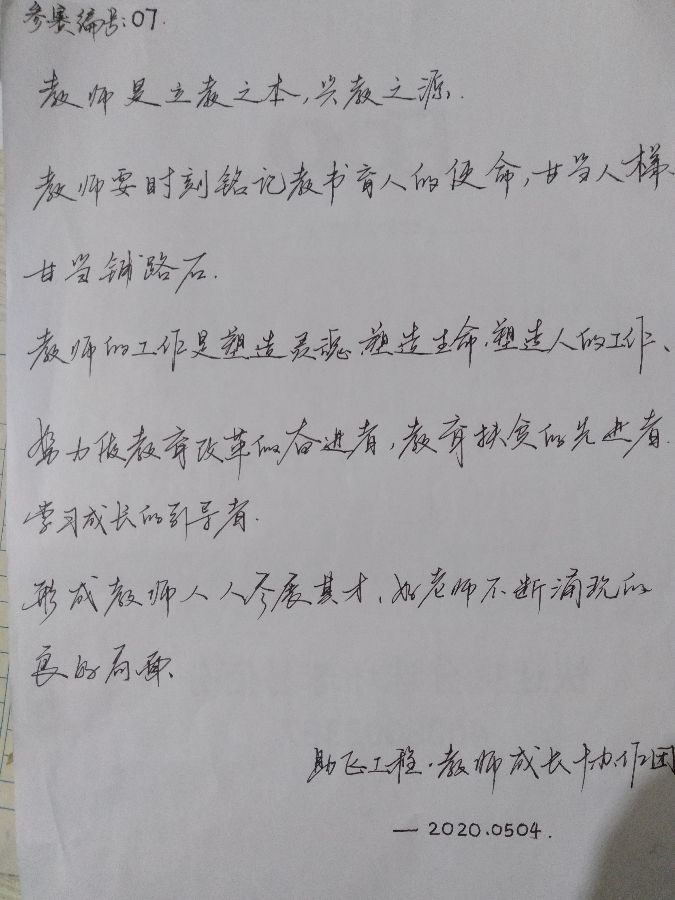 参赛编号:07.
教师是立教之本,兴教之源.
教师要时刻铭记教书育人的使命,甘当人梯、
甘当铺路石.
教师的工作是塑造灵魂.塑造生命.塑造人的工作、
努力做教育改革的奋进者,教育扶贫的先进者.
学习成长的引导者.
形成教师人人尽展其才、好老师不断涌现的
良好局面、
助飞工程·教师成长协作团
— 2020.0504.